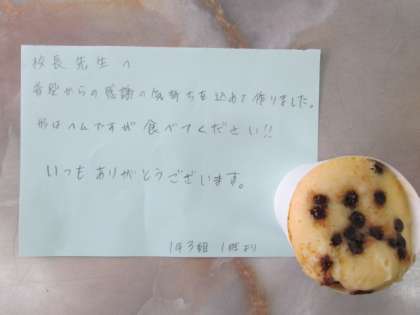 校長先生へ
希望からの感謝の気持ちを込めて作りました。
形はヘんですが食べてください!!
いつもありがとうございます。
1年3組 1班より